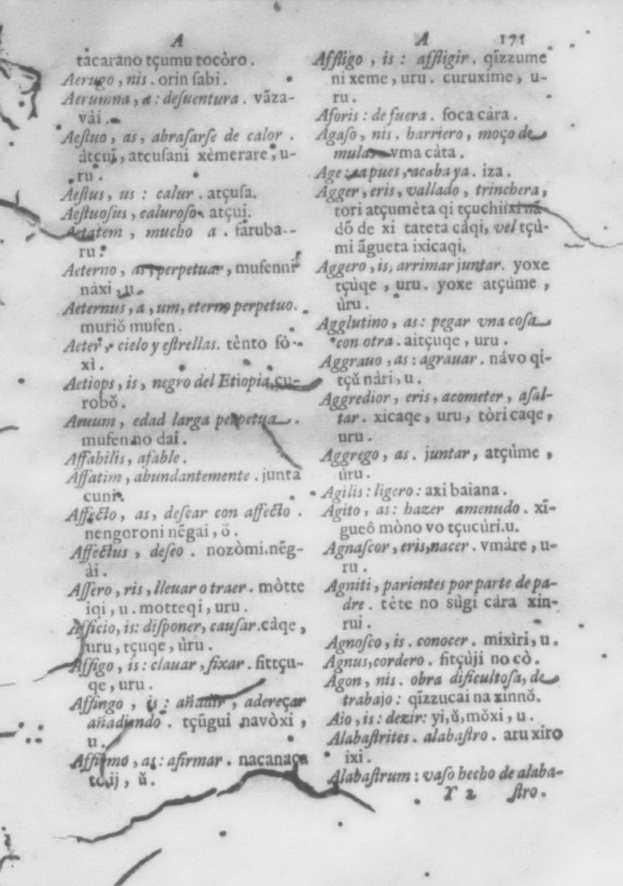 A
tacarano tçumu tocòro.
Aerugo, nis. orin sabi.
Aerumna, æ: desuentura. vāza-
vài.
Aestuo, as, abrasarse de calor.
àtçui, atcusani xèmerare, u-
ru.
Aestus, us: calur. atçusa.
Aestuosus, caluroso. atçui.
Aetatem, mucho a. faruba-
ru.
Aeterno, as, perpetuar, musenni
nàxi, u.
Aeternus, a, um, eterno perpetuo.
muriŏ musen.
Aeter, cielo y estrellas. tènto fò-
xi.
Aetiops, is, negro del Etiopia, cu-
robŏ.
Aeuum, edad larga perpetua.
musen no dai.
Affabilis, afable.
Affatim, abundantemente. junta
cuni.
Affecto, as, desear con affecto.
nengoroni nēgai, ŏ.
Affectus, deseo. nozòmi. nēg-
ài.
Affero, ris, lleuar o traer. mòtte
iqi, u. motteqi, uru.
Afficio, is: disponer, causar. càqe,
uru, tçuqe, ùru.
Affigo, is: clauar, fixar. fittçu-
qe, uru.
Affingo, is: añadir, adereçar
añadiendo. tçūgui navòxi,
u.
Affirmo, as: afirmar. naçanaça
ij, ŭ.
A 171
Affligo, is: affligir. qīzzume
ni xeme, uru. curuxime, u-
ru.
Aforis: de fuera. soca càra.
Agaso, nis. harriero, moço de
mulas. vma càta.
Age: ea pues, acaba ya. iza.
Agger, eris, vallado, trinchera,
tori atçumèta qi tçuchi ixi nā-
dŏ de xi tateta càqi, vel tçù-
mi āgueta ixicaqi.
Aggero, is, arrimar juntar. yoxe
tçùqe, uru. yoxe atçùme,
ùru.
Agglutino, as: pegar vna cosa
con otra. aitçuqe, uru.
Aggrauo, as: agrauar. návo qí-
tçŭ nári, u.
Aggredior, eris, acometer, asal-
tar. xicaqe, uru, tòri caqe,
uru.
Aggrego, as. juntar, atçùme,
ùru.
Agilis: ligero: axi baiana.
Agito, as: hazer amenudo. xī-
gueô mòno vo tçucùri.u.
Agnascor, eris, nacer. vmàre, u-
ru.
Agniti, parientes por parte de pa-
dre. tète no sùgi càra xin-
rui.
Agnosco, is. conocer. mixiri, u.
Agnus, cordero. fitçùji no cò.
Agon, nis. obra dificultosa, de
trabajo: qīzzucai na xinnŏ.
Aio, is: dezir: yi, ŭ, mŏxi, u.
Alabastrites. alabastro. aru xiro
ixi.
Alabastrum: vaso hecho de alaba-
Y 2 stro.